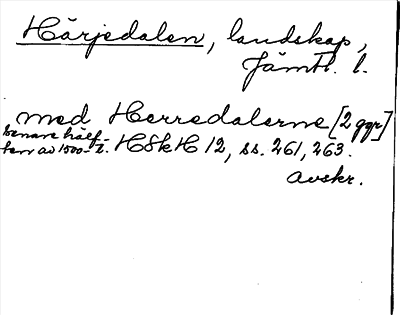 Härjedalen, landskap,
Jämtl. l.
med Herredalerne [2 ggr]
senare hälf-
ten av 1500-t. HSkH 12, ss. 261, 263.
Avskr.